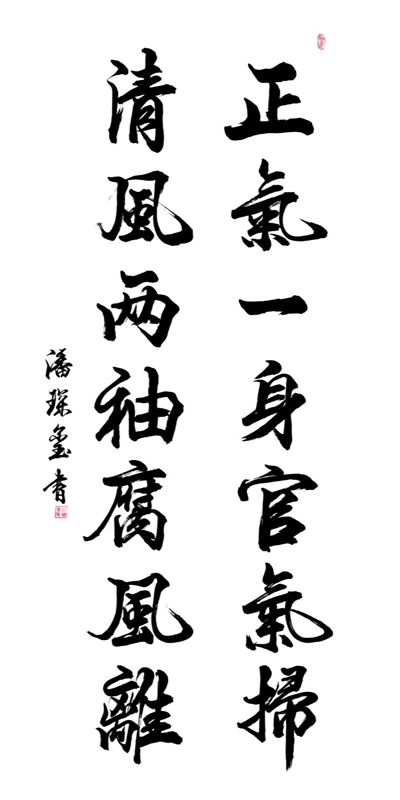 正氣一身官氣掃
清風两袖腐風離
潘琛鋆書